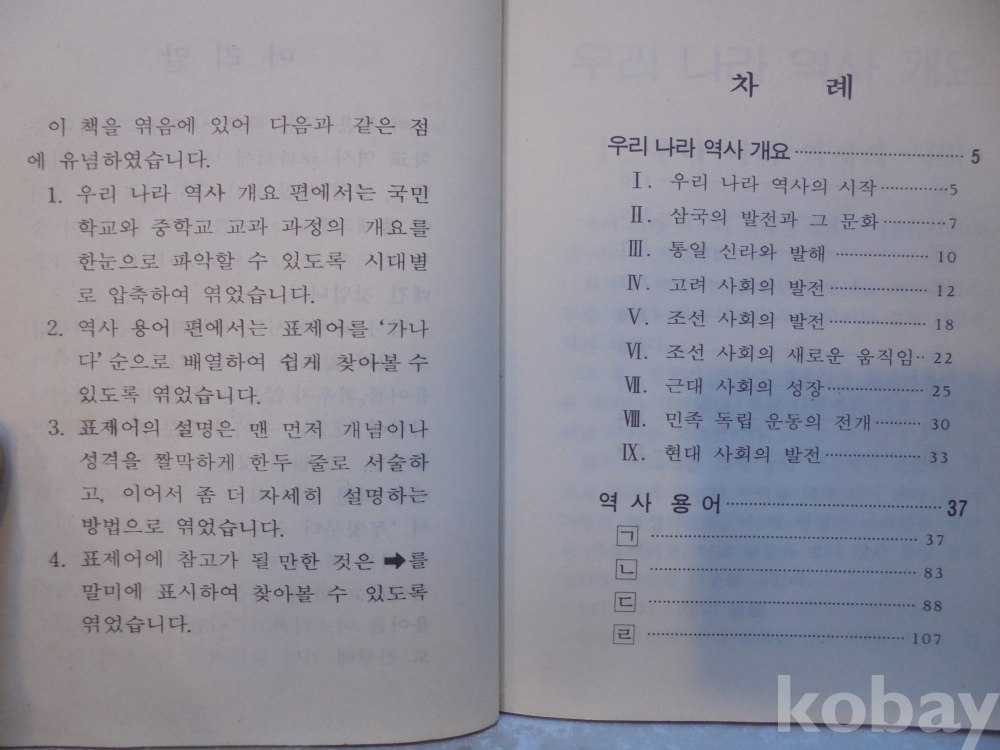 이 책을 엮음에 있어 다음과 같은 점
에 유념하였습니다.
1. 우리 나라 역사 개요 편에서는 국민
학교와 중학교 교과 과정의 개요를
한눈으로 파악할 수 있도록 시대별
로 압축하여 엮었습니다.
2. 역사 용어 편에서는 표제어를 '가나
다' 순으로 배열하여 쉽게 찾아볼 수
있도록 엮었습니다.
3. 표제어의 설명은 맨 먼저 개념이나
성격을 짤막하게 한두 줄로 서술하
고, 이어서 좀 더 자세히 설명하는
방법으로 엮었습니다.
4. 표제어에 참고가 될 만한 것은 ➡를
말미에 표시하여 찾아볼 수 있도록
엮었습니다.
차 례
우리 나라 역사 개요 5
Ⅰ. 우리 나라 역사의 시작 5
Ⅱ. 삼국의 발전과 그 문화 7
Ⅲ. 통일 신라와 발해 10
Ⅳ. 고려 사회의 발전 12
Ⅴ. 조선 사회의 발전 18
Ⅵ. 조선 사회의 새로운 움직임 22
Ⅶ. 근대 사회의 성장 25
Ⅷ. 민족 독립 운동의 전개 30
Ⅸ. 현대 사회의 발전 33
역 사 용 어 37
ㄱ 37
ㄴ 83
ㄷ 88
ㄹ 107
kobay